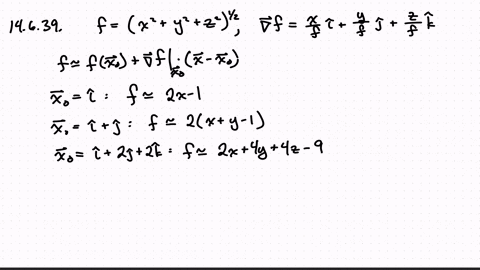 14.6.39. f = (x² + y² + z²)^½, ∇⃗f = x/f î + y/f ĵ + z/f k̂
f ≃ f(x⃗₀) + ∇⃗f|x⃗₀ · (x⃗ - x⃗₀)
x⃗₀ = î : f ≃ 2x - 1
x⃗₀ = î + ĵ : f ≃ 2(x + y - 1)
x⃗₀ = î + 2ĵ + 2k̂ : f ≃ 2x + 4y + 4z - 9